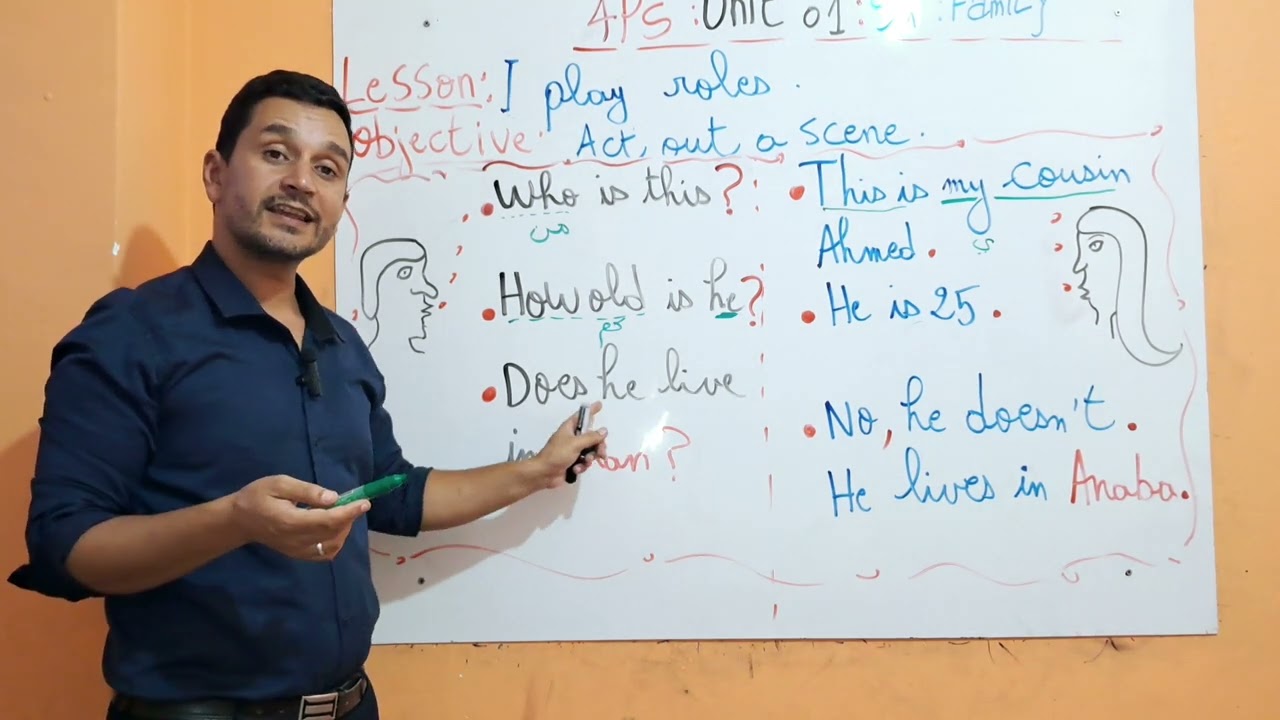 4PS : Unit 01 : Family
Lesson: I play roles.
Objective: Act out a scene.
• Who is this?
من
• How old is he?
كم
• Does he live
in ?
• This is my cousin
ي
Ahmed.
• He is 25.
• No, he doesn't.
He lives in Anaba.